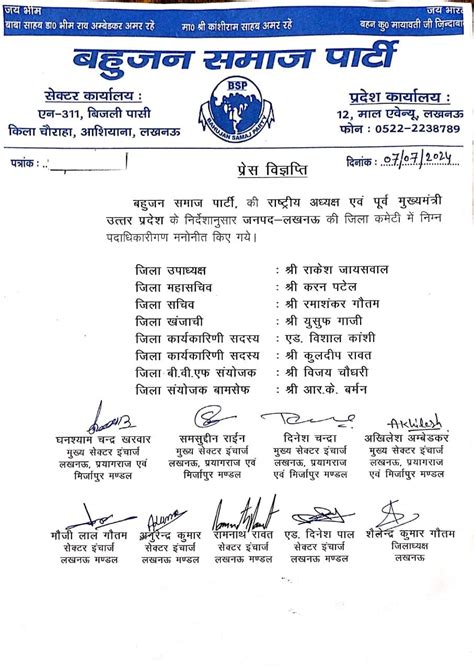 जय भीम
जय भारत
बाबा साहब डा0 भीम राव अम्बेडकर अमर रहे
मा0 श्री कांशीराम साहब अमर रहे
बहन कु0 मायावती जी जिन्दाबाद
बहुजन समाज पार्टी
सेक्टर कार्यालय :
एन-311, बिजली पासी
किला चौराहा, आशियाना, लखनऊ
BSP
BAHUJAN SAMAJ PARTY
प्रदेश कार्यालय :
12, माल एवेन्यू, लखनऊ
फोन : 0522-2238789
पत्रांक :
दिनांक : 07/07/2024
प्रेस विज्ञप्ति
बहुजन समाज पार्टी, की राष्ट्रीय अध्यक्ष एवं पूर्व मुख्यमंत्री
उत्तर प्रदेश के निर्देशानुसार जनपद-लखनऊ की जिला कमेटी में निम्न
पदाधिकारीगण मनोनीत किए गये।
जिला उपाध्यक्ष : श्री राकेश जायसवाल
जिला महासचिव : श्री करन पटेल
जिला सचिव : श्री रमाशंकर गौतम
जिला खंजाची : श्री युसुफ गाजी
जिला कार्यकारिणी सदस्य : एड. विशाल कांशी
जिला कार्यकारिणी सदस्य : श्री कुलदीप रावत
जिला बी.वी.एफ संयोजक : श्री विजय चौधरी
जिला संयोजक बामसेफ : श्री आर.के. बर्मन
Akhilesh
घनश्याम चन्द्र खरवार
मुख्य सेक्टर इंचार्ज
लखनऊ, प्रयागराज एवं
मिर्जापुर मण्डल
समसुद्दीन राईन
मुख्य सेक्टर इंचार्ज
लखनऊ, प्रयागराज एवं
मिर्जापुर मण्डल
दिनेश चन्द्रा
मुख्य सेक्टर इंचार्ज
लखनऊ, प्रयागराज एवं
मिर्जापुर मण्डल
अखिलेश अम्बेडकर
मुख्य सेक्टर इंचार्ज
लखनऊ, प्रयागराज एवं
मिर्जापुर मण्डल
मौजी लाल गौतम
सेक्टर इंचार्ज
लखनऊ मण्डल
अनुरेन्द्र कुमार
सेक्टर इंचार्ज
लखनऊ मण्डल
रामनाथ रावत
सेक्टर इंचार्ज
लखनऊ मण्डल
एड. दिनेश पाल
सेक्टर इंचार्ज
लखनऊ मण्डल
शैलेन्द्र कुमार गौतम
जिलाध्यक्ष
लखनऊ